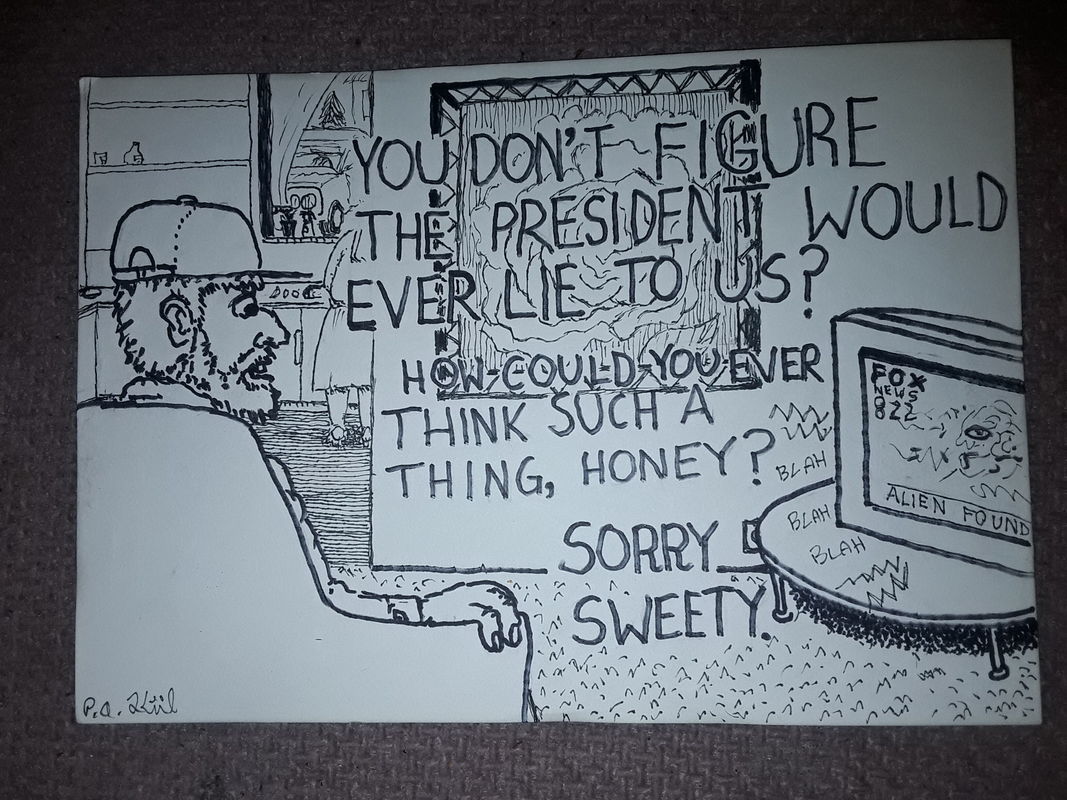 YOU DON'T FIGURE
THE PRESIDENT WOULD
EVER LIE TO US?
HOW COULD YOU EVER
THINK SUCH A
THING, HONEY?
SORRY
SWEETY.
FOX
NEWS
822
ALIEN FOUND
BLAH
BLAH
BLAH
P.A. Kiil